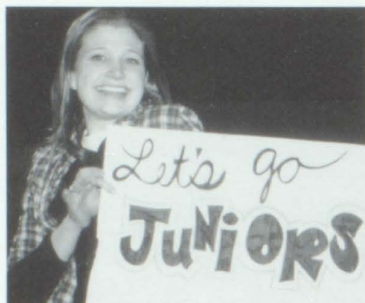 Let's go
JUNiORS